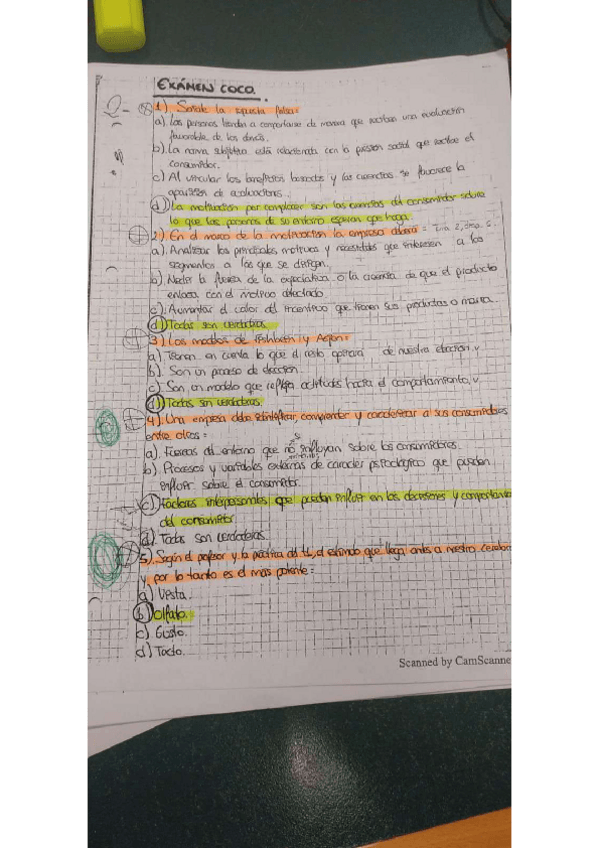 EXÁMEN COCO.
1). Señale la respuesta falsa:
a). Las personas tienden a comportarse de manera que reciban una evaluación
favorable de los demás.
b). La norma subjetiva está relacionada con la presión social que recibe el
consumidor.
c) Al vincular los beneficios buscados y las creencias se favorece la
aparición de evaluaciones.
d) La motivación por complacer son las creencias del consumidor sobre
lo que las personas de su entorno esperan que haga.
2). En el marco de la motivación la empresa deberá =
a). Analizar los principales motivos y necesidades que interesen a los
segmentos a los que se dirigen.
b). Medir la fuerza de la expectativa o la creencia de que el producto
enlaza con el motivo detectado
c). Aumentar el valor del incentivo que tienen sus productos o marca.
d) Todas son verdaderas.
3). Los modelos de Fishbein y Ajzen =
a) Tienen en cuenta lo que el resto opinará de nuestra elección. v
b). Son un proceso de decisión.
c) Son un modelo que refleja actitudes hacia el comportamiento. v
d) Todas son verdaderas.
4). Una empresa debe identificar, comprender y considerar a sus consumidores
entre otros =
a). Fuerzas del entorno que no influyan sobre los consumidores.
b) Procesos y variables externas de carácter psicológico que pueden
influir sobre el consumidor.
c) Factores interpersonales que pueden influir en las decisiones y comportamiento
del consumidor
d). Todas son verdaderas.
5). Según el profesor y la práctica del el estímulo que llega antes a nuestro cerebro
y por lo tanto es el más potente =
a) Vista.
b) Olfato.
c) Gusto.
d) Tacto.
Scanned by CamScanne